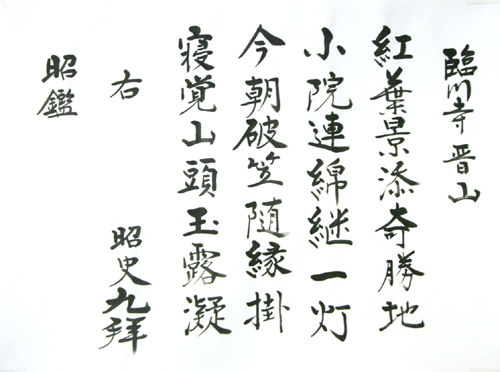 臨川寺晋山
紅葉景添奇勝地
小院連綿継一灯
今朝破笠随縁掛
寝覚山頭玉露凝
右
昭史九拝
昭鑑